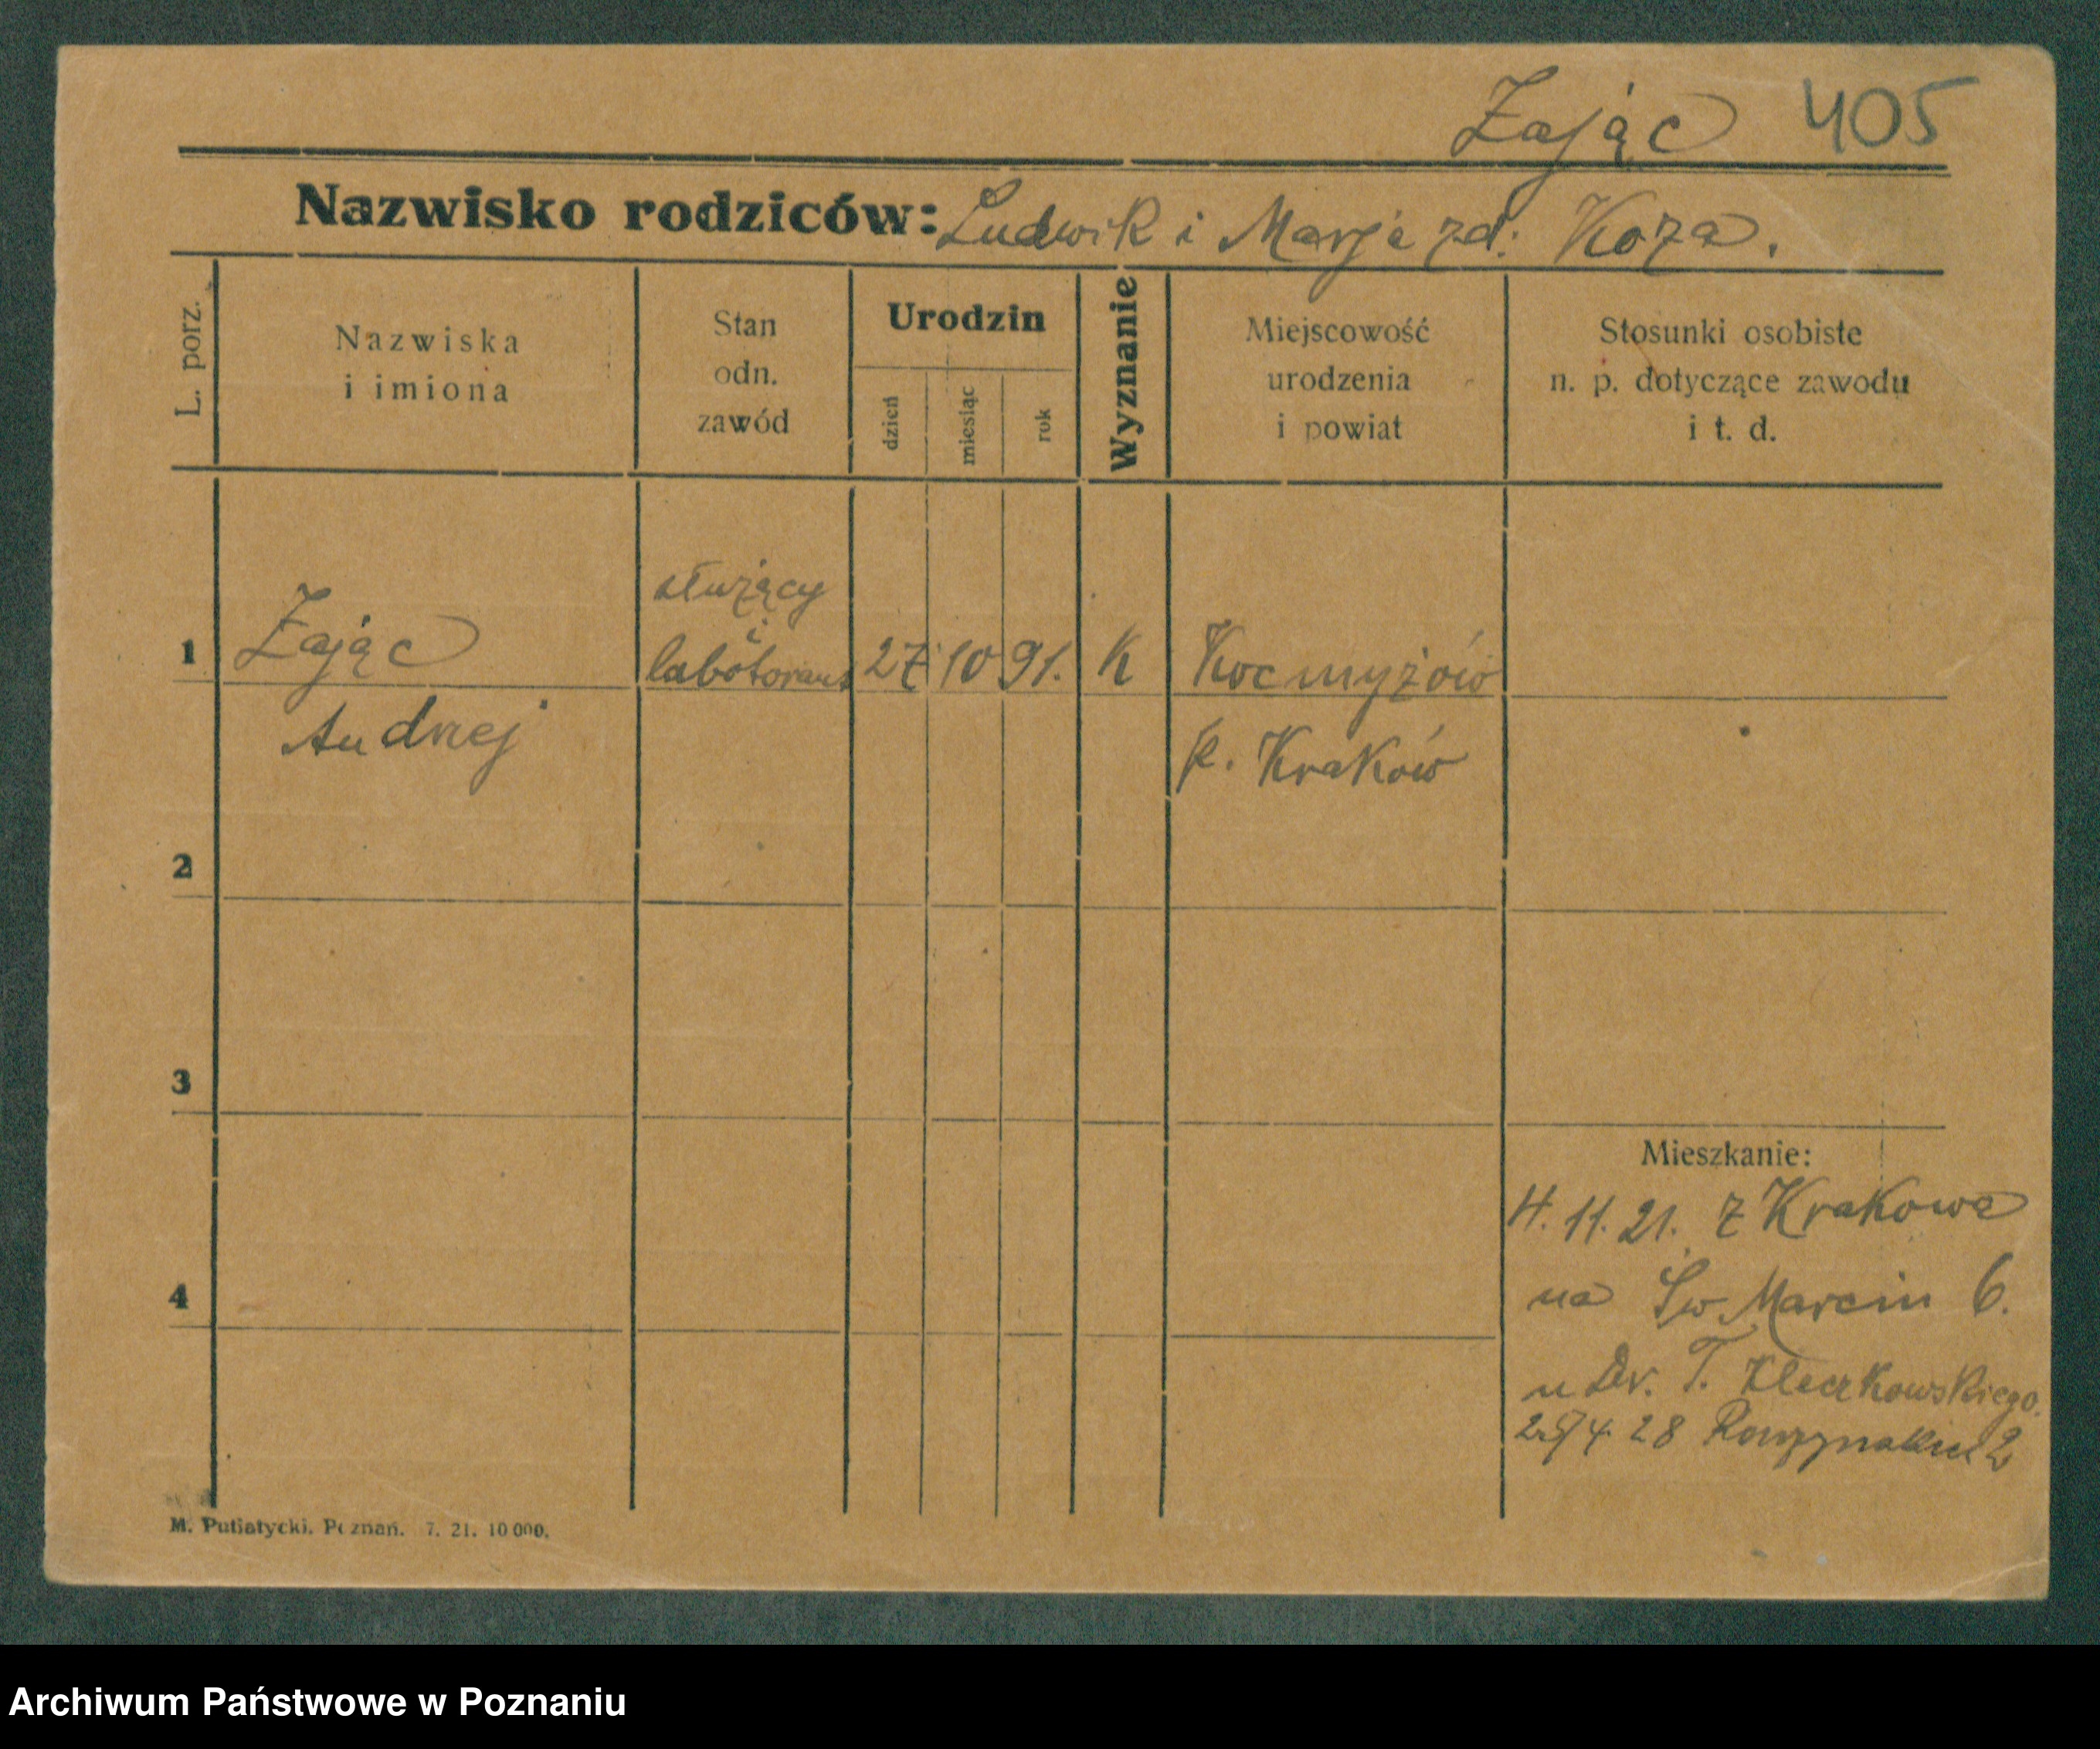 Zając 405
Nazwisko rodziców: Ludwik i Marja zd: Koza.
L. porz.
Nazwiska
i imiona
Stan
odn.
zawód
Urodzin
dzień
miesiąc
rok
Wyznanie
Miejscowość
urodzenia
i powiat
Stosunki osobiste
n. p. dotyczące zawodu
i t. d.
służący
i
1 Zając laborant 27 10 91. K Kocmyżów
Andrzej p. Kraków
2
3
Mieszkanie:
4. 11. 21. z Krakowa
4
na Św Marcin 6.
u Dr. T. Kleczkowskiego.
4 28 2
M. Putiatycki. Poznań. 7. 21. 10 000.
Archiwum Państwowe w Poznaniu